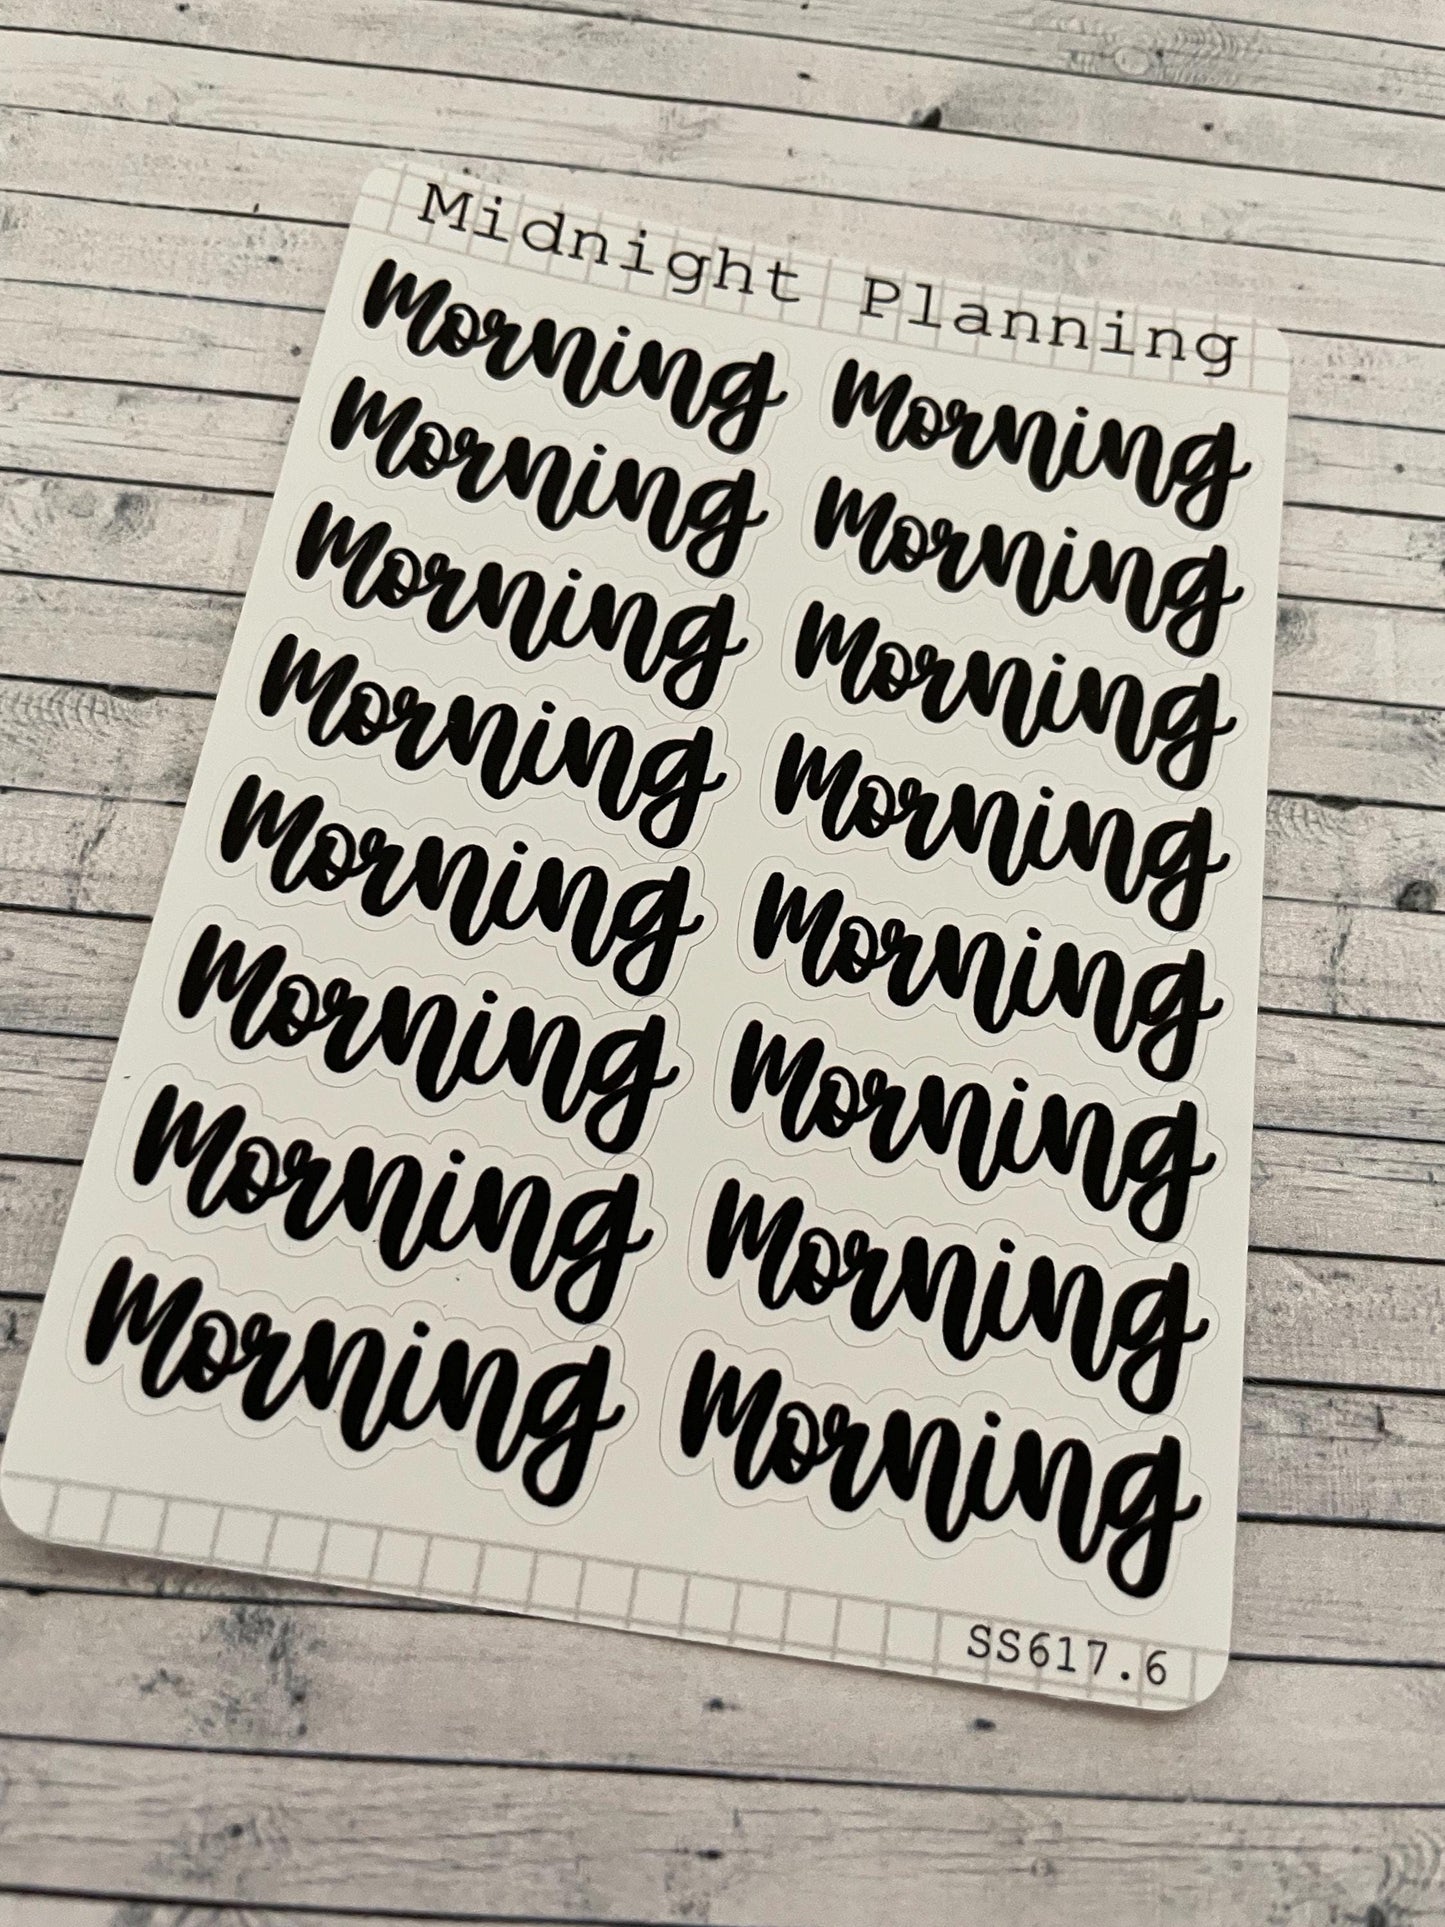 Midnight Planning
Morning Morning
Morning Morning
Morning Morning
Morning Morning
Morning Morning
Morning Morning
Morning Morning
Morning Morning
SS617.6